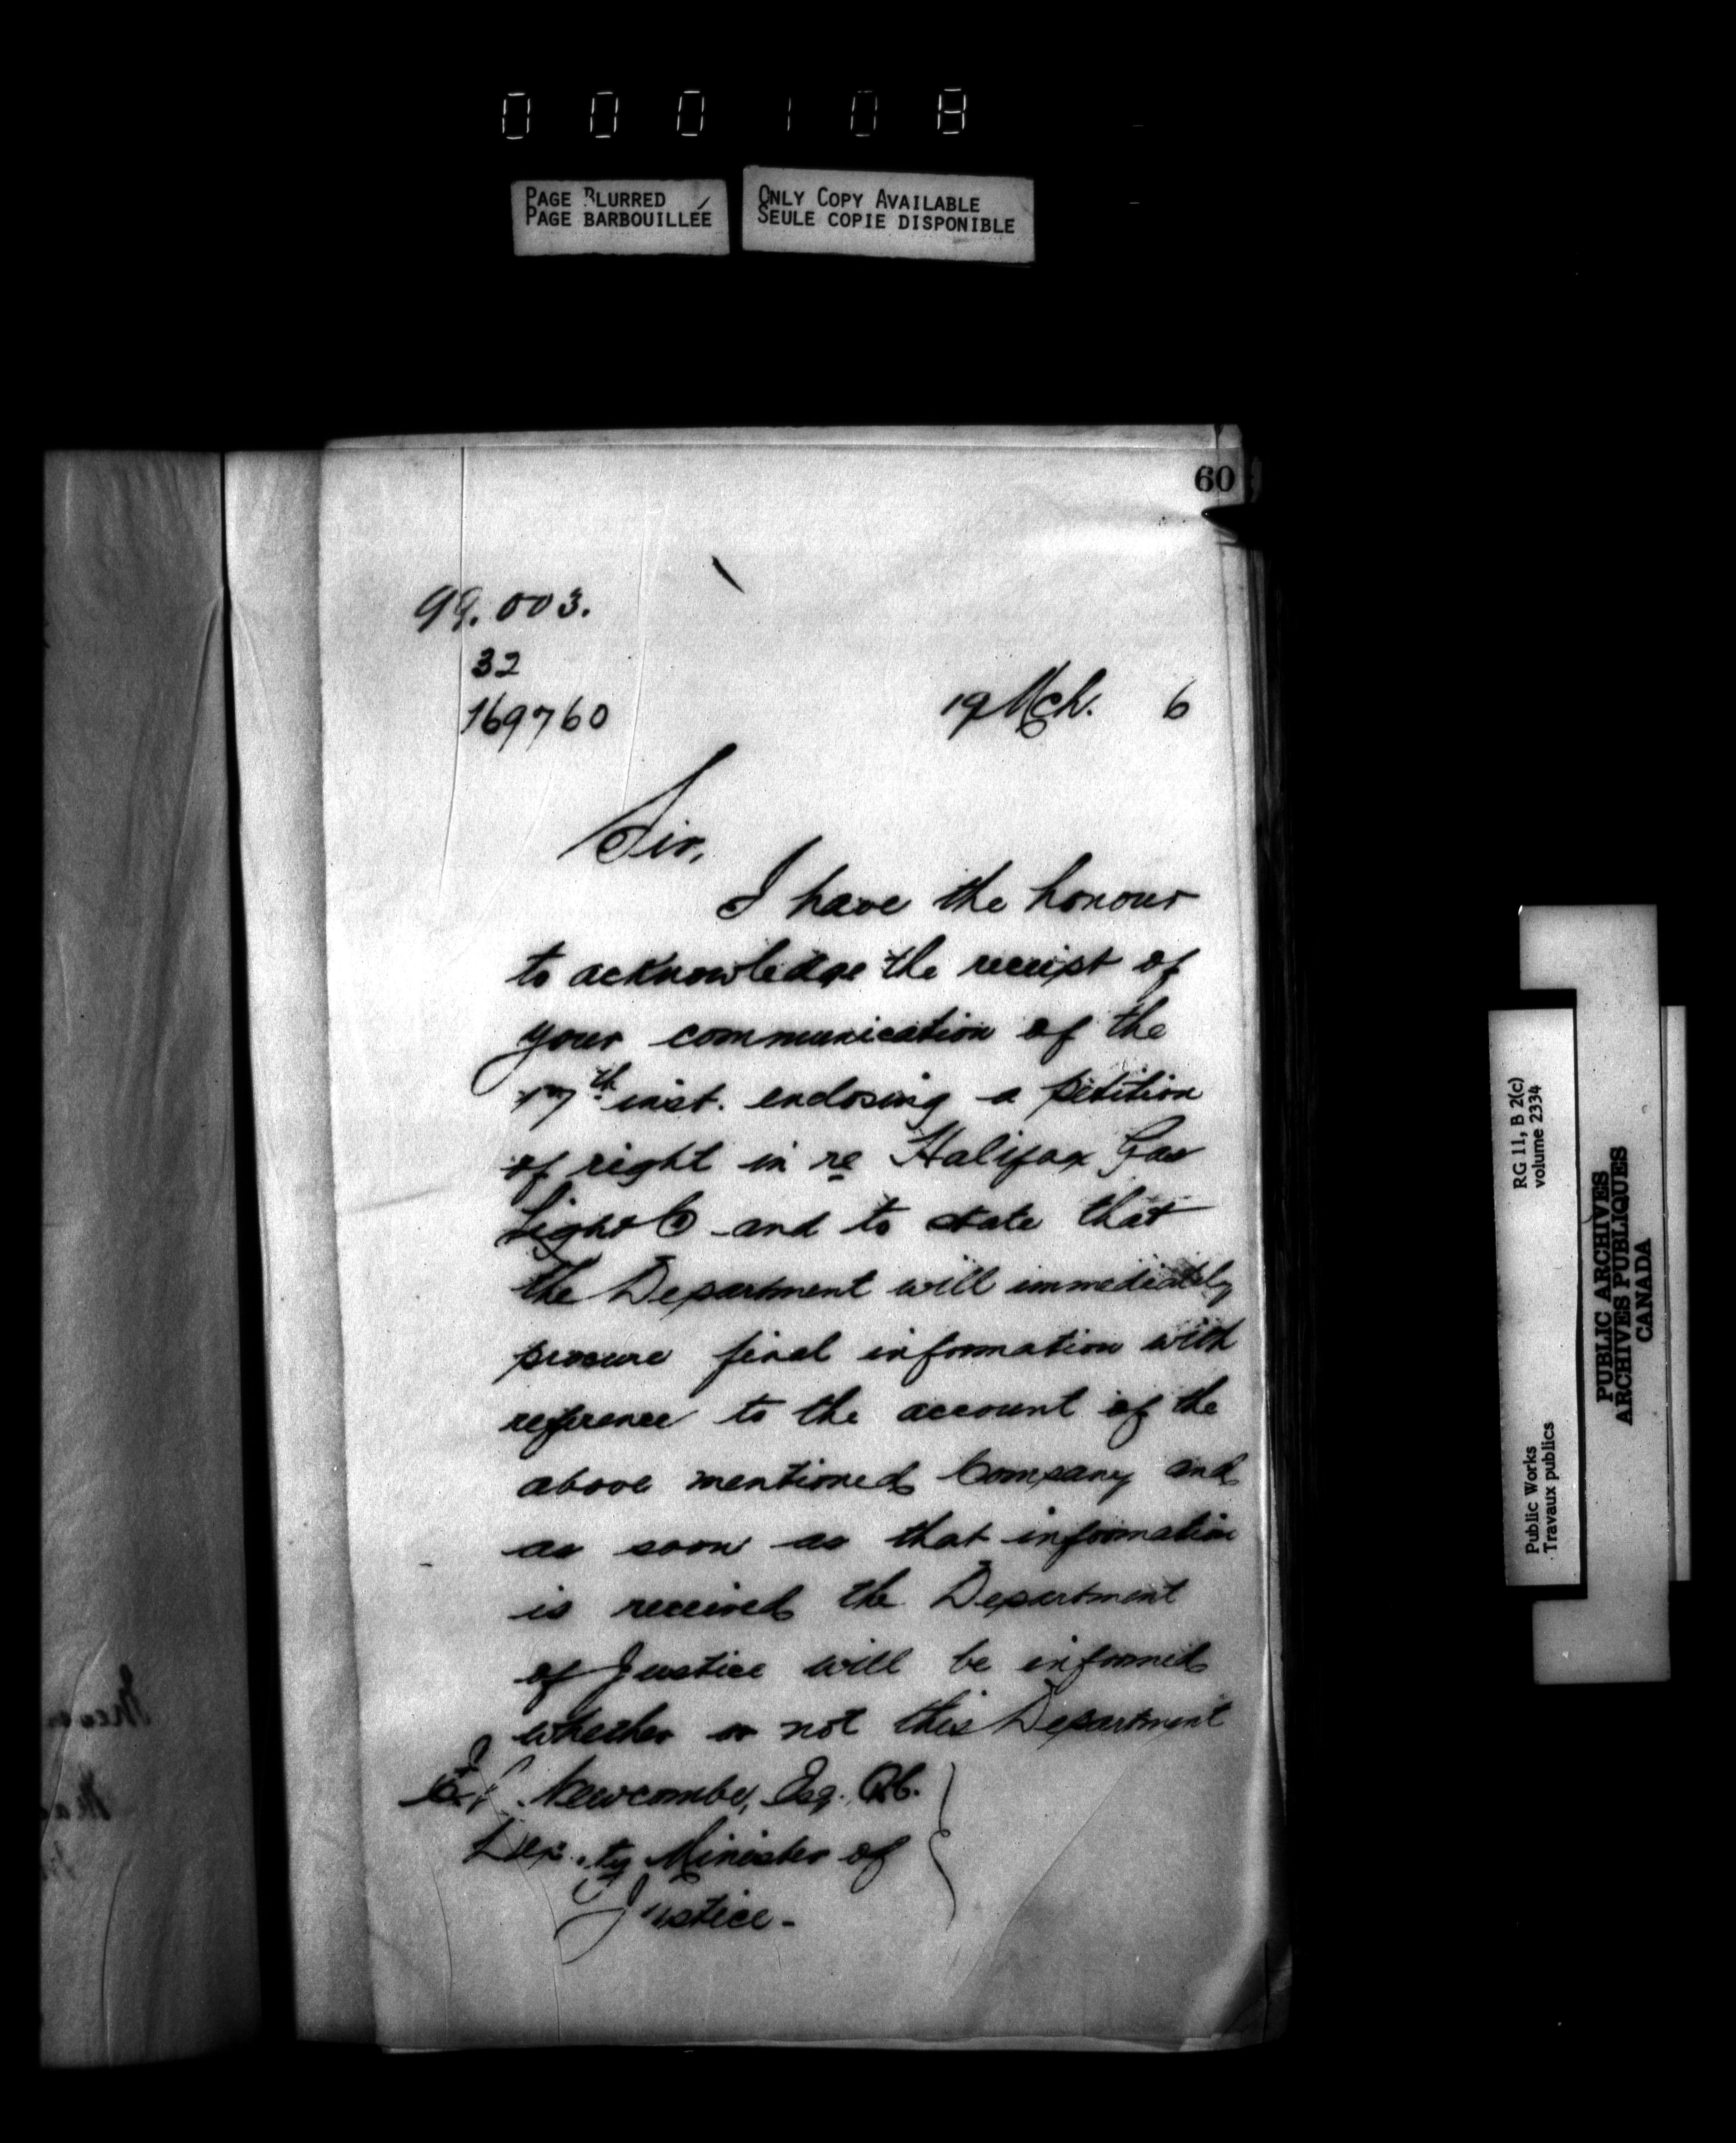 000108
PAGE BLURRED
PAGE BARBOUILLÉE
ONLY COPY AVAILABLE
SEULE COPIE DISPONIBLE
60
99.003.
32
169760
19 Mch. 6
Sir,
I have the honour
to acknowledge the receipt of
your communication of the
17th inst. enclosing a petition
of right in re Halifax Gas
Light Co and to state that
the Department will immediately
procure final information with
reference to the account of the
above mentioned Company and
as soon as that information
is received the Department
of Justice will be informed
whether or not this Department
Newcombe, Esq. Q.C.
Deputy Minister of
Justice.
RG 11, B 2(c)
volume 2334
Public Works
Travaux publics
PUBLIC ARCHIVES
ARCHIVES PUBLIQUES
CANADA